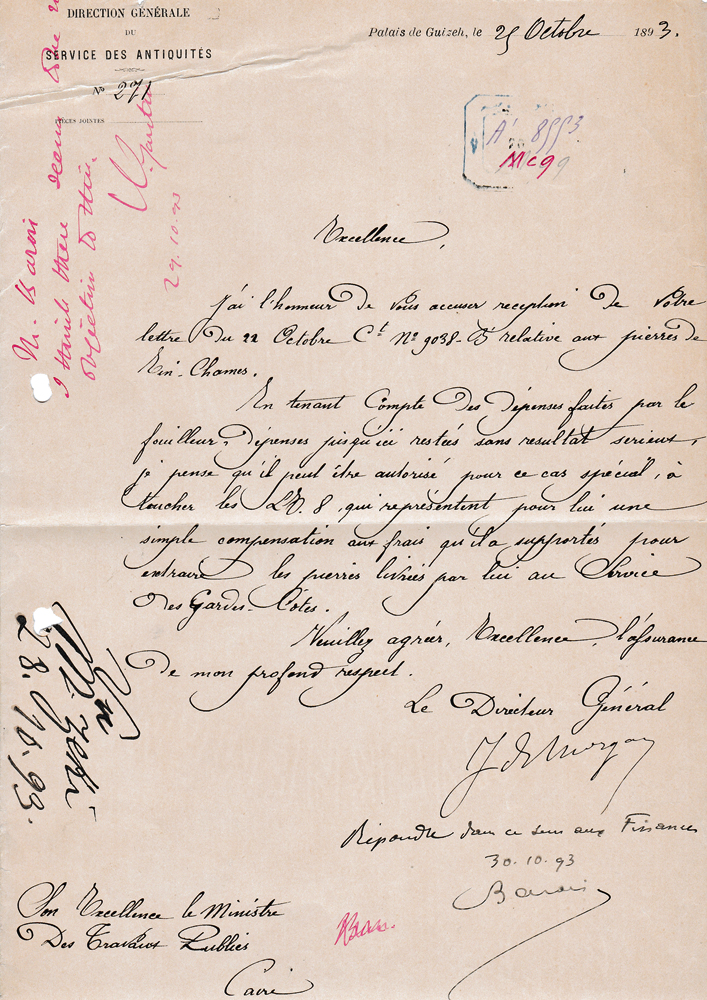 DIRECTION GÉNÉRALE
DU
SERVICE DES ANTIQUITÉS
Nº 271
PIÈCES JOINTES
Palais de Guizeh, le 25 Octobre 1893.
A' 8553
Mc9
Mr. Barois
I think there seems to be
objection to this.
29.10.93
Excellence,
J'ai l'honneur de vous accuser reception de Votre
lettre du 22 Octobre Ct Nº 9038- relative aux pierres de
Ein-Chames.
En tenant Compte des dépenses faites par le
fouilleur, dépenses jusqu'ici restées sans resultat serieux,
je pense qu'il peut être autorisé pour ce cas spécial, à
toucher les LE. 8, qui représentent pour lui une
simple compensation aux frais qu'il a supportés pour
extraire les pierres livrées par lui au Service
des Gardes-Côtes.
Veuillez agréer, Excellence, l'assurance
de mon profond respect.
Le Directeur Général
J de Morgan
Vu
M. Zeki
28.10.93.
Répondre dans ce sens aux Finances
30.10.93
Barois
Son Excellence le Ministre
Des Travaux Publics
Caire